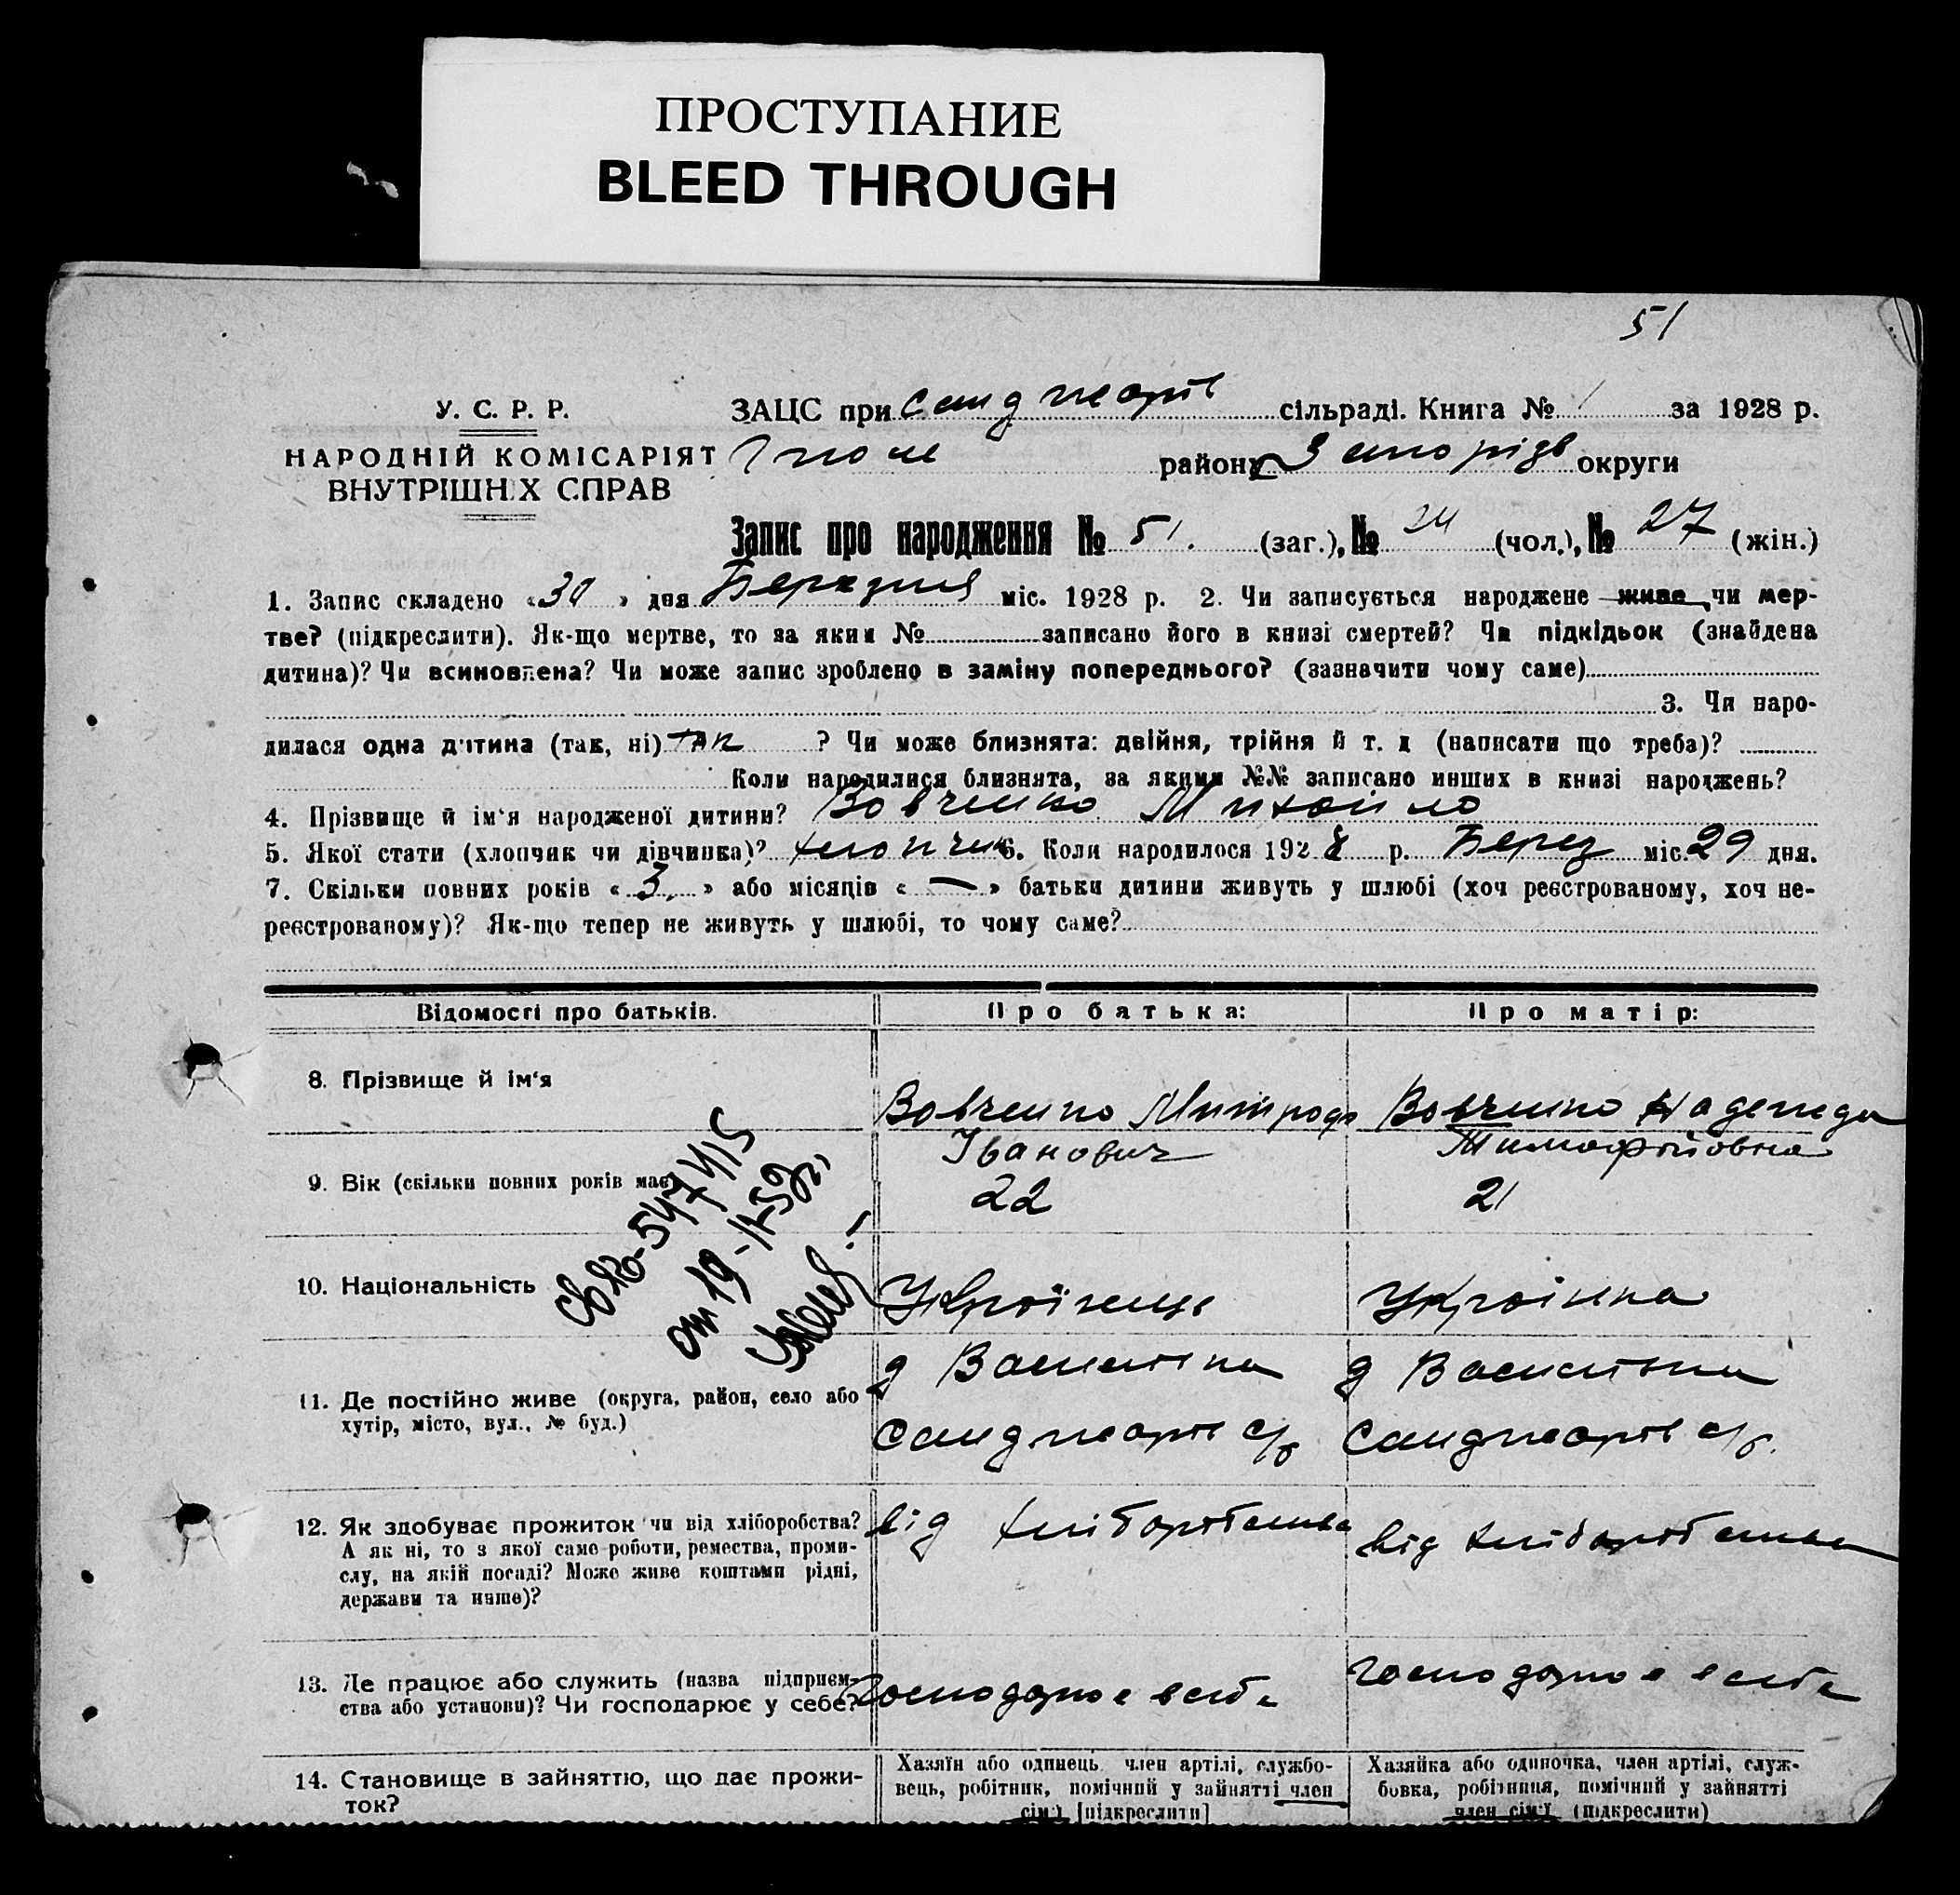 ПРОСТУПАНИЕ
BLEED THROUGH
51
У. С. Р. Р.
НАРОДНІЙ КОМІСАРІЯТ
ВНУТРІШНІХ СПРАВ
ЗАЦС при сільраді. Книга № 1 за 1928 р.
району Запорізь округи
Запис про народження № 51. (заг.), № 24 (чол.), № 27 (жін.)
1. Запис складено «30» дня Березня міс. 1928 р. 2. Чи записується народжене живе, чи мер-
тве? (підкреслити). Як-що мертве, то за яким № записано його в книзі смертей? Чи підкідьок (знайдена
дитина)? Чи всиновлена? Чи може запис зроблено в заміну попереднього? (зазначити чому саме)
3. Чи наро-
дилася одна дитина (так, ні) так ? Чи може близнята: двійня, трійня й т. д (написати що треба)?
Коли народилися близнята, за якими №№ записано инших в книзі народжень?
4. Прізвище й ім'я народженої дитини? Вовченко Михайло
5. Якої стати (хлопчик чи дівчинка)? хлопчик 6. Коли народилося 1928 р. Берез міс. 29 дня.
7. Скільки повних років «3» або місяців « — » батьки дитини живуть у шлюбі (хоч реєстрованому, хоч не-
реєстрованому)? Як-що тепер не живуть у шлюбі, то чому саме?
Відомості про батьків. Про батька: Про матір:
8. Прізвище й ім'я
Вовченко Митрофа Вовченко Надежда
Іванович Тимофійовна
9. Вік (скільки повних років має)
22 21
св ЯЮ-547415
от 19-11-52г,
10. Національність
Українець Українка
д Василівка д Василівка
11. Де постійно живе (округа, район, село або
хутір, місто, вул., № буд.)
с/р с/р.
12. Як здобуває прожиток чи від хліборобства?
А як ні, то з якої саме роботи, ремества, проми-
слу, на якій посаді? Може живе коштами рідні,
держави та инше)?
від хліборобства від хліборобства
13. Де працює або служить (назва підприєм-
ства або установи)? Чи господарює у себе?
господарює в себе господарює в себе
14. Становище в зайняттю, що дає прожи-
ток?
Хазяїн або одинець, член артілі, службо-
вець, робітник, помічний у зайнятті член
сім'ї [підкреслити]
Хазяйка або одиночка, член артілі, служ-
бовка, робітниця, помічний у зайнятті
член сім'ї (підкреслити)